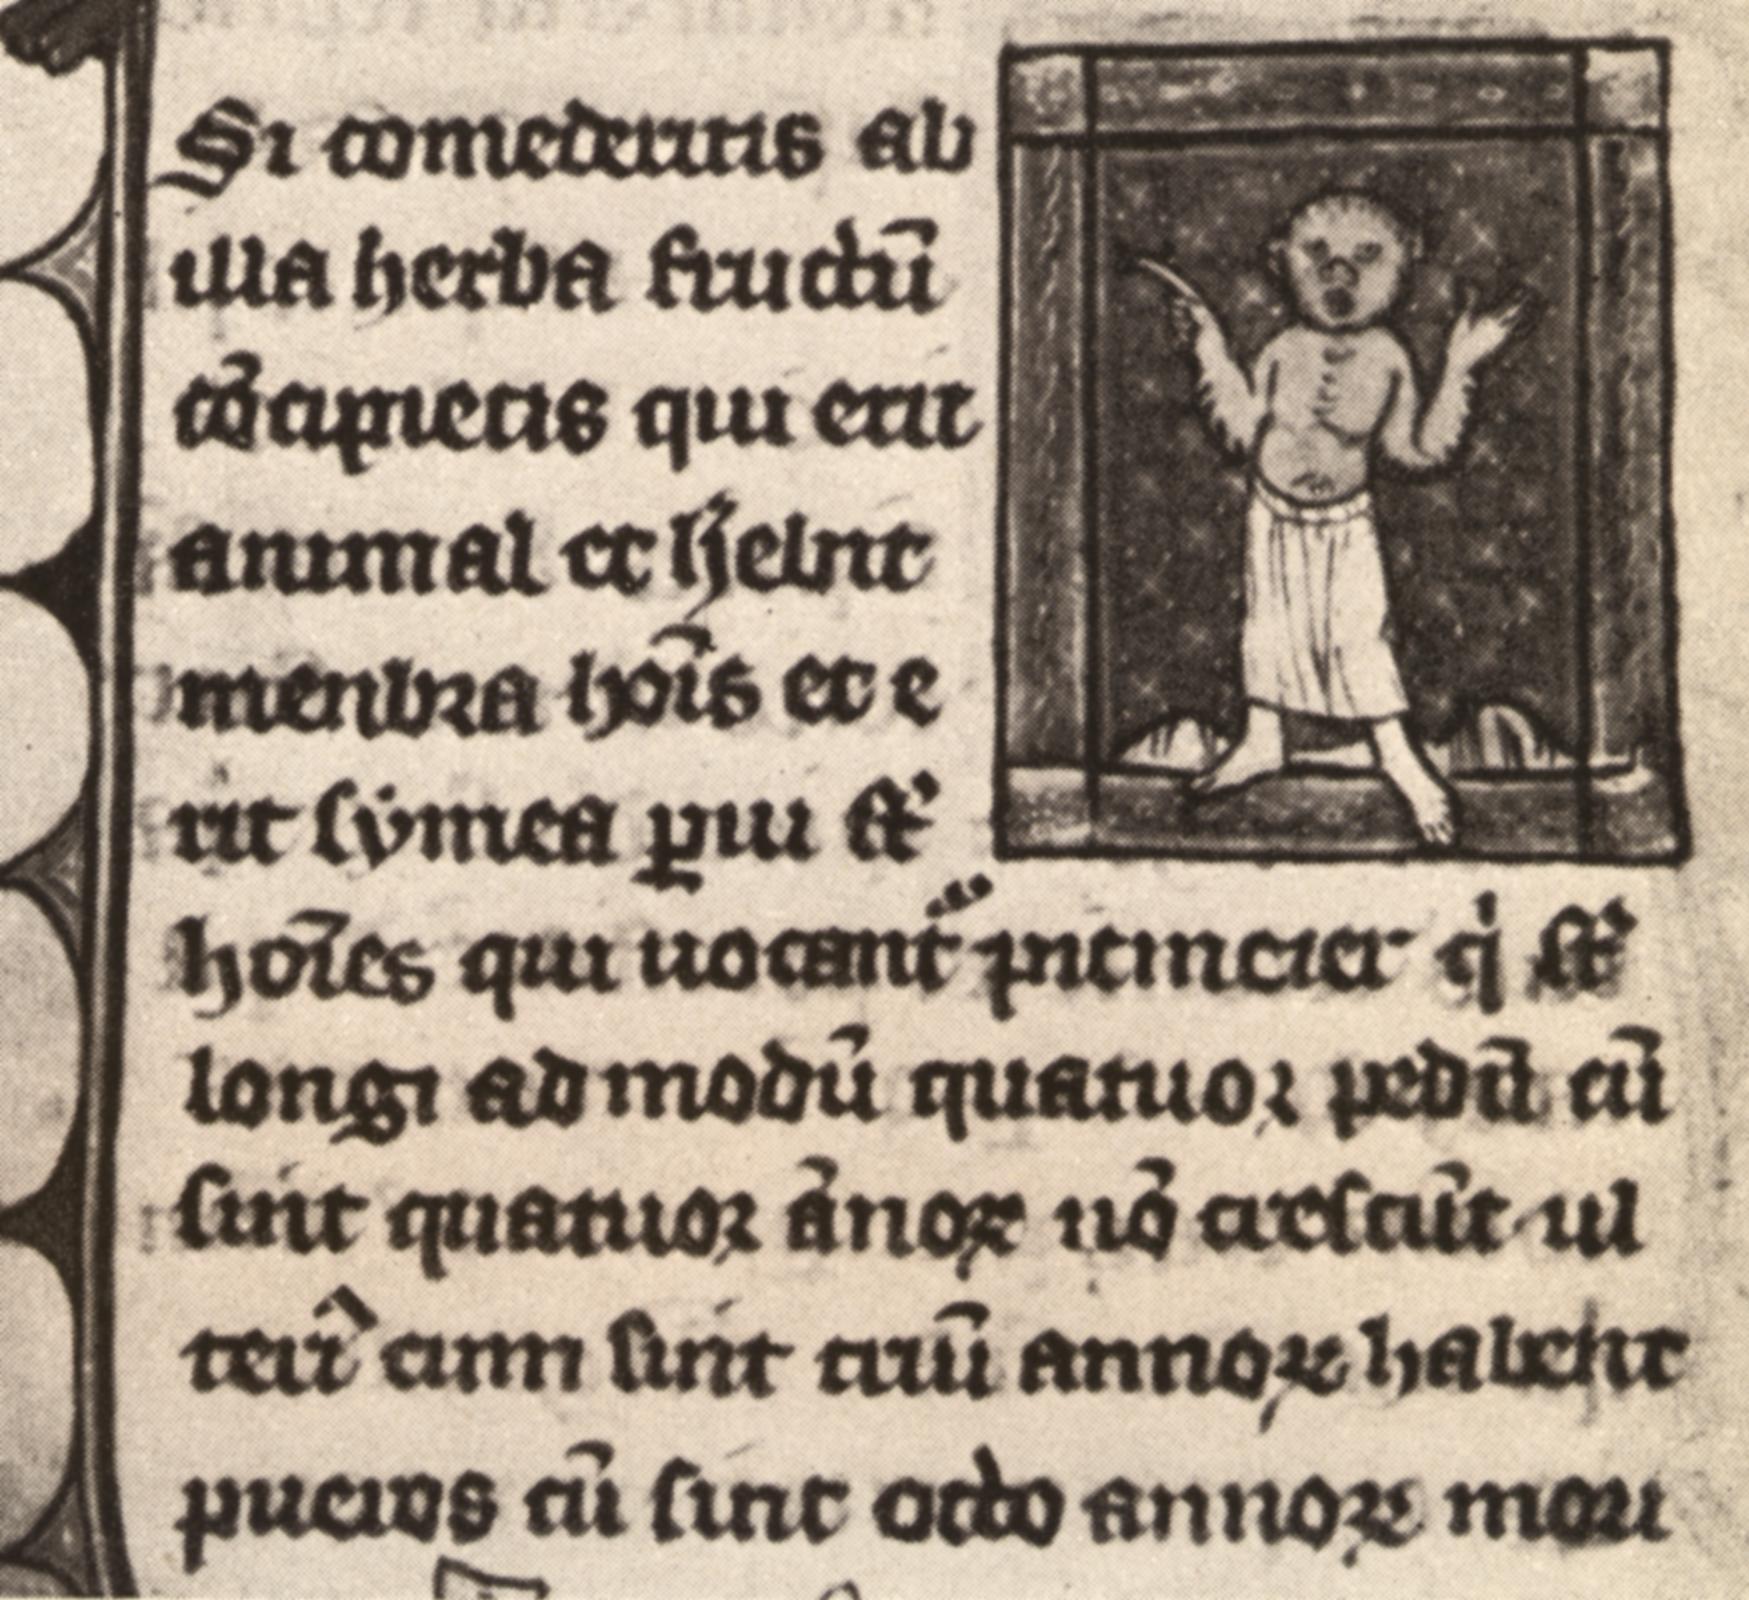 Si comederitis ab
illa herba fructū
cōcipietis qui erit
animal et hēbit
menbra hoīs et e
rit sẏmea p̱iu st̄
hoīes qui uocant̄ pitincier qi st̄
longi ad modū quatuor pedū cū
sint quatuor ānoꝝ nō crescūt ul
teri᾽ cum sint triū annoꝝ habent
pueros cū sint octo annoꝝ mori